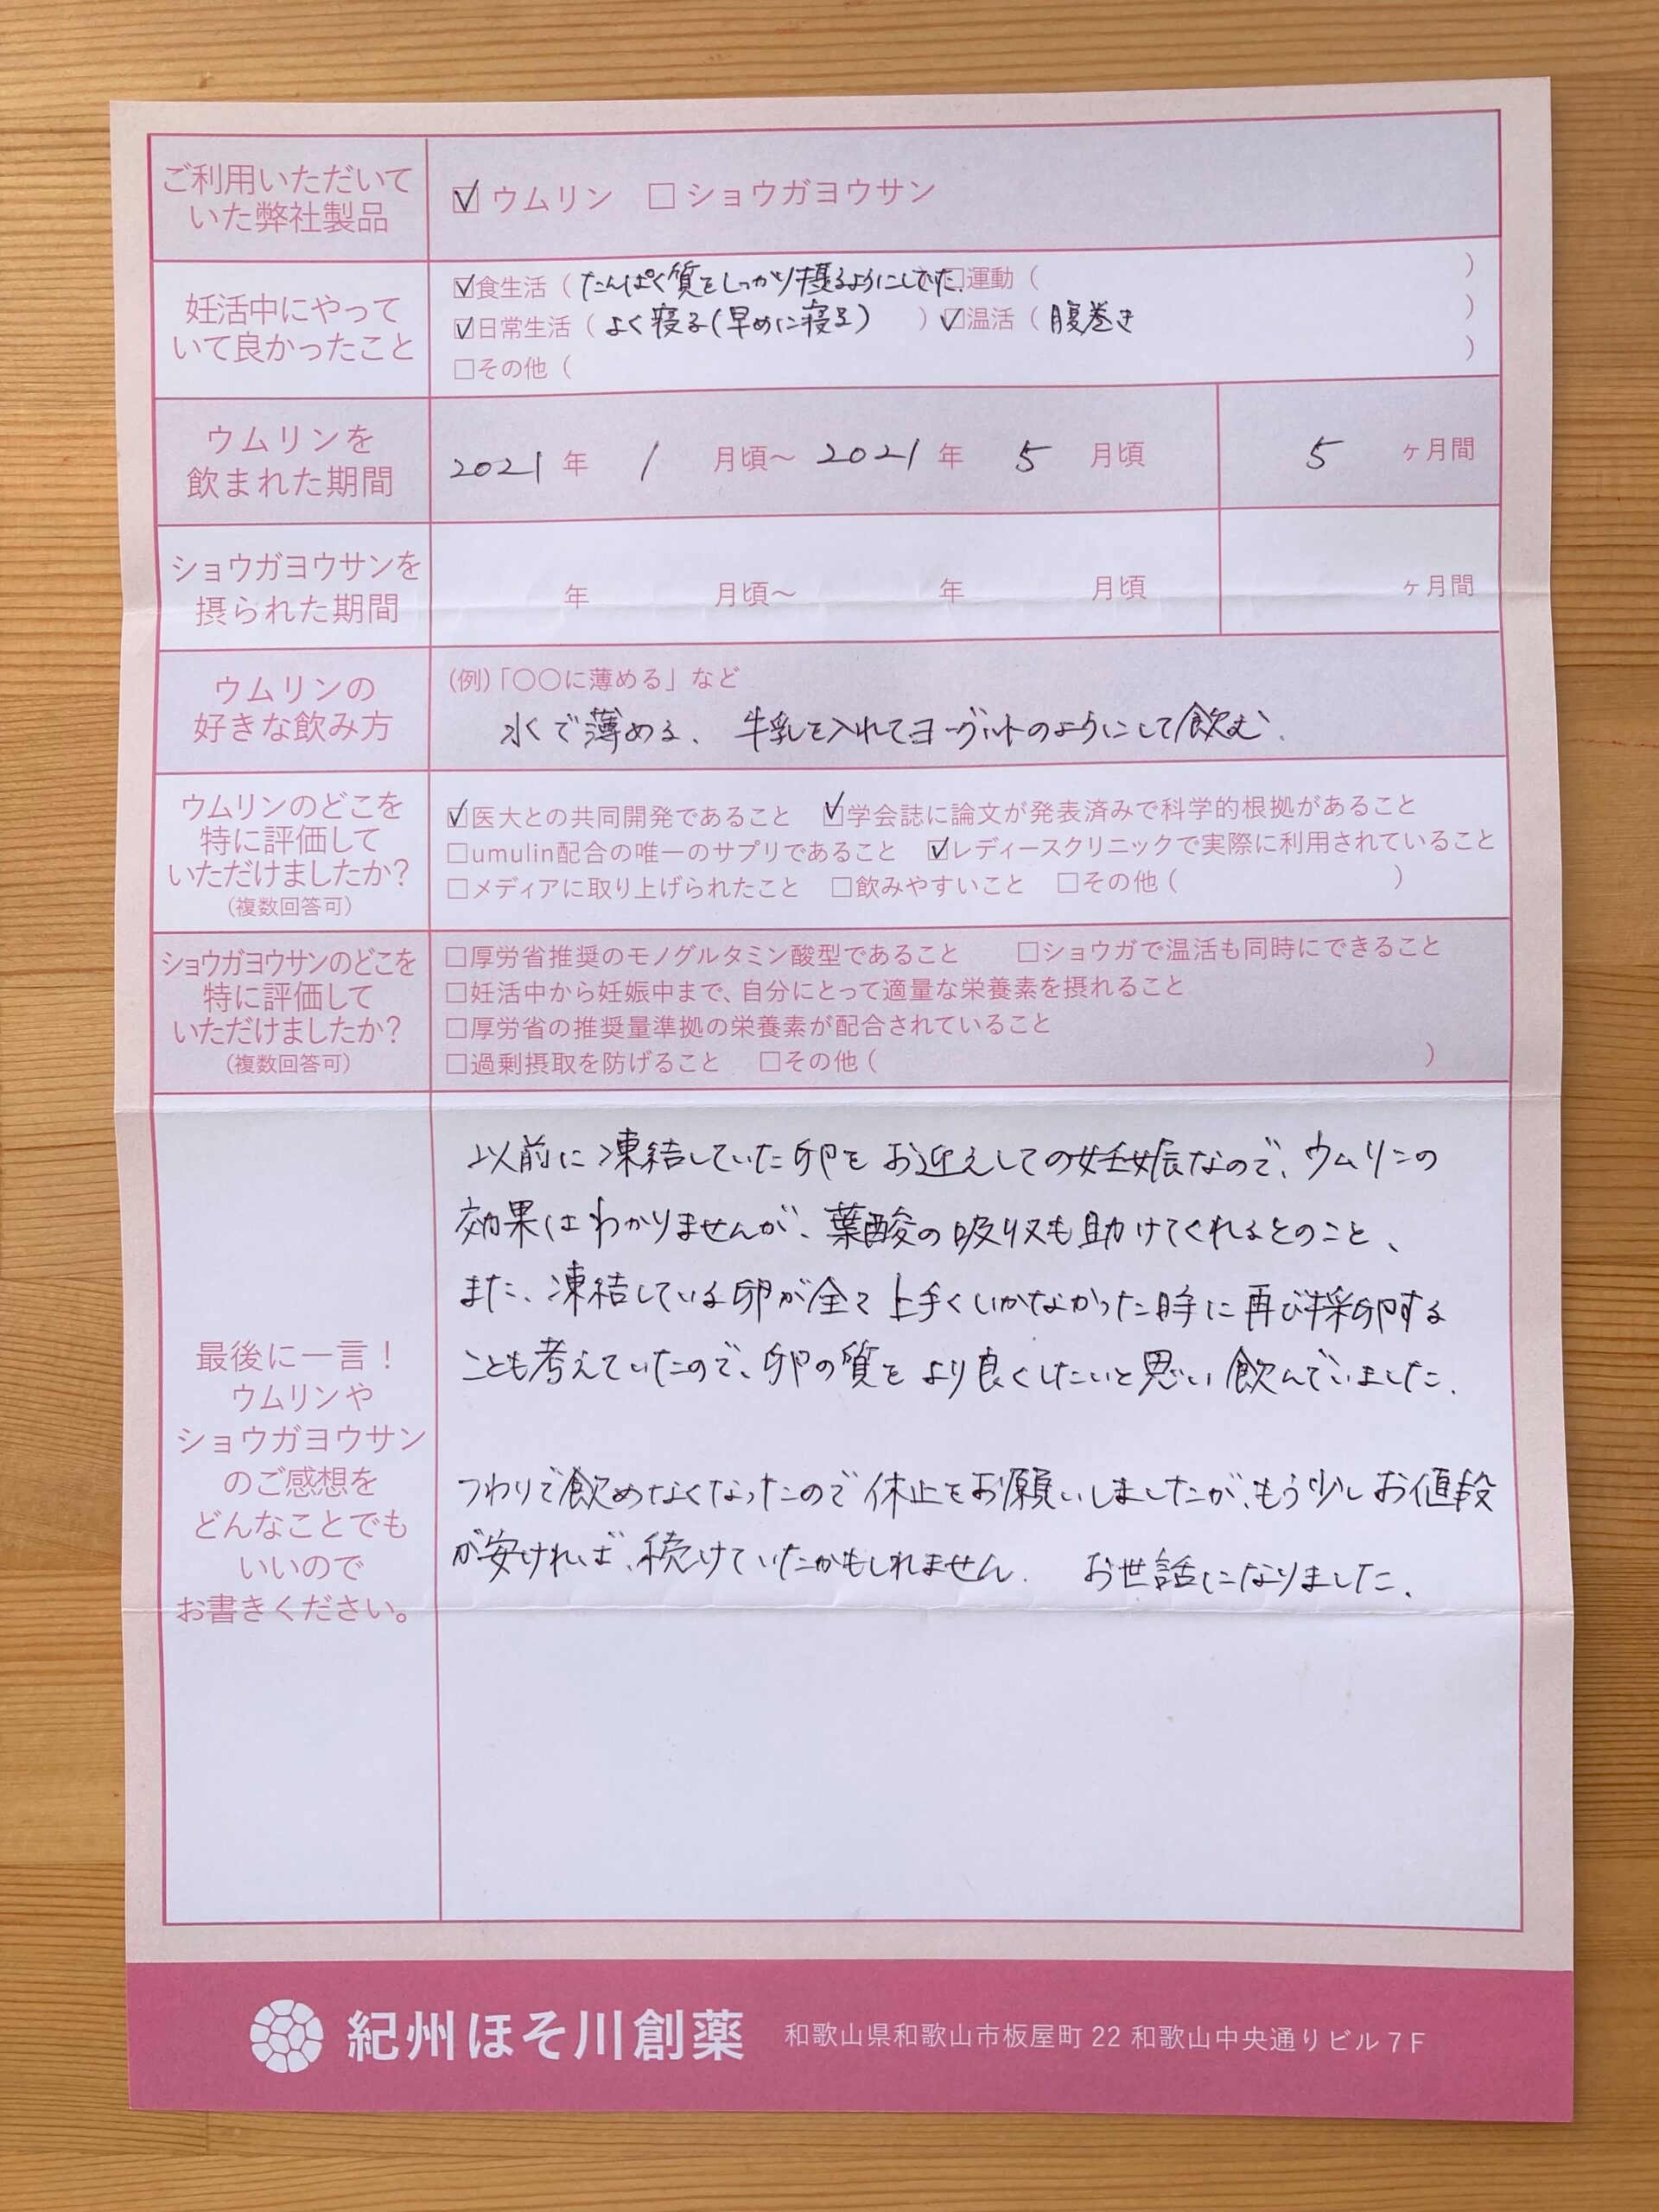 ご利用いただいて
いた弊社製品
☑ウムリン □ショウガヨウサン
妊活中にやって
いて良かったこと
☑食生活（たんぱく質をしっかり摂るようにしてた。□運動（ ）
☑日常生活（よく寝る(早めに寝る) ）☑温活（腹巻き ）
□その他（ ）
ウムリンを
飲まれた期間
2021 年 1 月頃～ 2021 年 5 月頃 5 ヶ月間
ショウガヨウサンを
摂られた期間
年 月頃～ 年 月頃 ヶ月間
ウムリンの
好きな飲み方
(例)「〇〇に薄める」など
水で薄める、牛乳を入れてヨーグルトのようにして飲む。
ウムリンのどこを
特に評価して
いただけましたか？
(複数回答可)
☑医大との共同開発であること ☑学会誌に論文が発表済みで科学的根拠があること
□umulin配合の唯一のサプリであること ☑レディースクリニックで実際に利用されていること
□メディアに取り上げられたこと □飲みやすいこと □その他（ ）
ショウガヨウサンのどこを
特に評価して
いただけましたか？
(複数回答可)
□厚労省推奨のモノグルタミン酸型であること □ショウガで温活も同時にできること
□妊活中から妊娠中まで、自分にとって適量な栄養素を摂れること
□厚労省の推奨量準拠の栄養素が配合されていること
□過剰摂取を防げること □その他（ ）
最後に一言！
ウムリンや
ショウガヨウサン
のご感想を
どんなことでも
いいので
お書きください。
以前に凍結していた卵をお迎えしての妊娠なので、ウムリンの
効果はわかりませんが、葉酸の吸収も助けてくれるとのこと、
また、凍結している卵が全て上手くいかなかった時に再び採卵する
ことも考えていたので、卵の質をより良くしたいと思い飲んでいました。
つわりで飲めなくなったので休止をお願いしましたが、もう少しお値段
が安ければ、続けていたかもしれません。 お世話になりました。
紀州ほそ川創薬 和歌山県和歌山市板屋町 22 和歌山中央通りビル 7 F